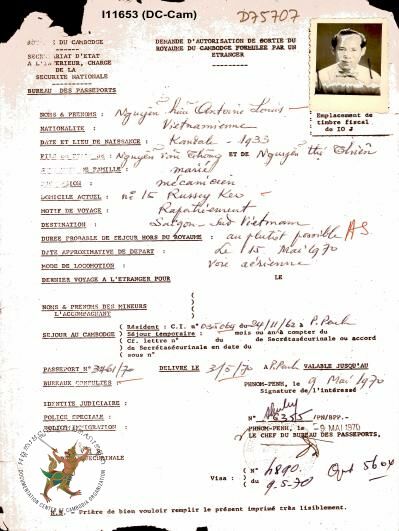 I11653 (DC-Cam) D75707
DU CAMBODGE
DEMANDE D'AUTORISATION DE SORTIE DU
ROYAUME DU CAMBODGE FORMULEE PAR UN
ETRANGER
SECRETARIAT D'ETAT
A L'INTERIEUR, CHARGE
DE LA
SECURITE NATIONALE
BUREAU DES PASSEPORTS
Emplacement de
timbre fiscal
de 10 J
NOMS & PRENOMS : Nguyễn Hữu Antoine Louis
NATIONALITE : Vietnamienne
DATE ET LIEU DE NAISSANCE : Kandale - 1933
DE Nguyễn Văn Thông ET DE Nguyễn Thị
FAMILLE : marié
mécanicien
DOMICILE ACTUEL : n° 15 Russey Keo
MOTIF DE VOYAGE : Rapatriement
DESTINATION : Saïgon - Sud Vietnam
DUREE PROBABLE DE SEJOUR HORS DU ROYAUME : au plutôt possible AS
DATE APPROXIMATIVE DE DEPART : Le 15 Mai 1970
MODE DE LOCOMOTION : Voie aérienne
DERNIER VOYAGE A L'ETRANGER POUR LE
NOMS & PRENOMS DES MINEURS
L'ACCOMPAGNANT
SEJOUR AU CAMBODGE ( Résident : C.I. n° du 24/11/62 à P. Penh
Séjour temporaire : mois ou an/à compter du
Cf. lettre n° du de Secrétasécurinale ou accord
de Secrétasécurinale en date du
sous n°
PASSEPORT N° 3461/70 DELIVRE LE 2/5/70 à P. Penh VALABLE JUSQU'AU
BUREAUX CONSULTES : PHNOM-PENH, le 9 Mai 1970
Signature de l'intéressé
IDENTITE JUDICIAIRE :
N° 6355 /PN/BPP.-
POLICE SPECIALE :
PHNOM-PENH, le - 9 MAI 1970
POLICE IMMIGRATION :
LE CHEF DU BUREAU DES PASSEPORTS,
Visa : ( N° 4890. 5604
( du 9.5.70
DOCUMENTATION CENTER OF CAMBODIA ORGANIZATION
N.B. - Prière de bien vouloir remplir le présent imprimé très lisiblement.